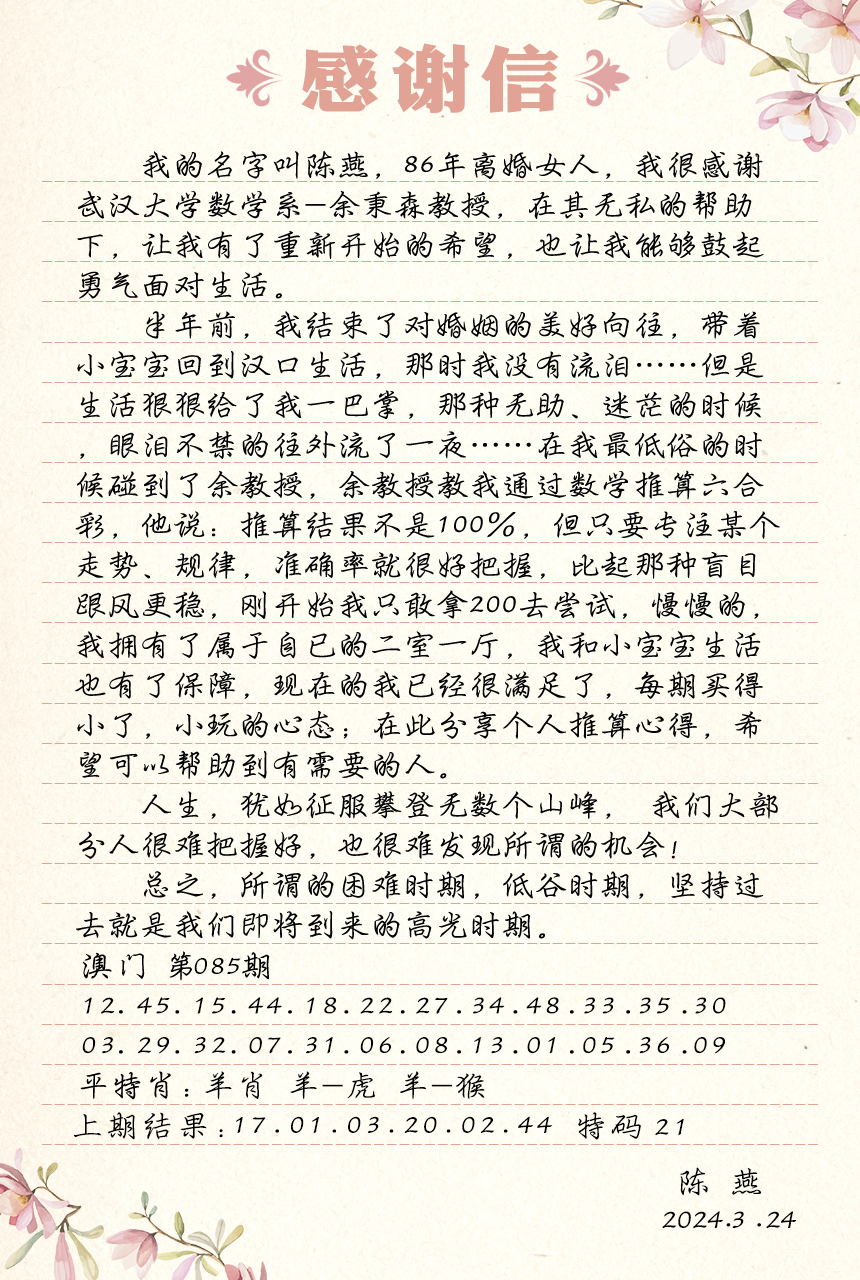 感谢信
我的名字叫陈燕，86年离婚女人，我很感谢
武汉大学数学系—余秉森教授，在其无私的帮助
下，让我有了重新开始的希望，也让我能够鼓起
勇气面对生活。
半年前，我结束了对婚姻的美好向往，带着
小宝宝回到汉口生活，那时我没有流泪……但是
生活狠狠给了我一巴掌，那种无助、迷茫的时候
，眼泪不禁的往外流了一夜……在我最低俗的时
候碰到了余教授，余教授教我通过数学推算六合
彩，他说：推算结果不是100%，但只要专注某个
走势、规律，准确率就很好把握，比起那种盲目
跟风更稳，刚开始我只敢拿200去尝试，慢慢的，
我拥有了属于自已的二室一厅，我和小宝宝生活
也有了保障，现在的我已经很满足了，每期买得
小了，小玩的心态；在此分享个人推算心得，希
望可以帮助到有需要的人。
人生，犹如征服攀登无数个山峰， 我们大部
分人很难把握好，也很难发现所谓的机会！
总之，所谓的困难时期，低谷时期，坚持过
去就是我们即将到来的高光时期。
澳门 第085期
12.45.15.44.18.22.27.34.48.33.35.30
03.29.32.07.31.06.08.13.01.05.36.09
平特肖：羊肖 羊—虎 羊—猴
上期结果：17.01.03.20.02.44 特码 21
陈 燕
2024.3.24